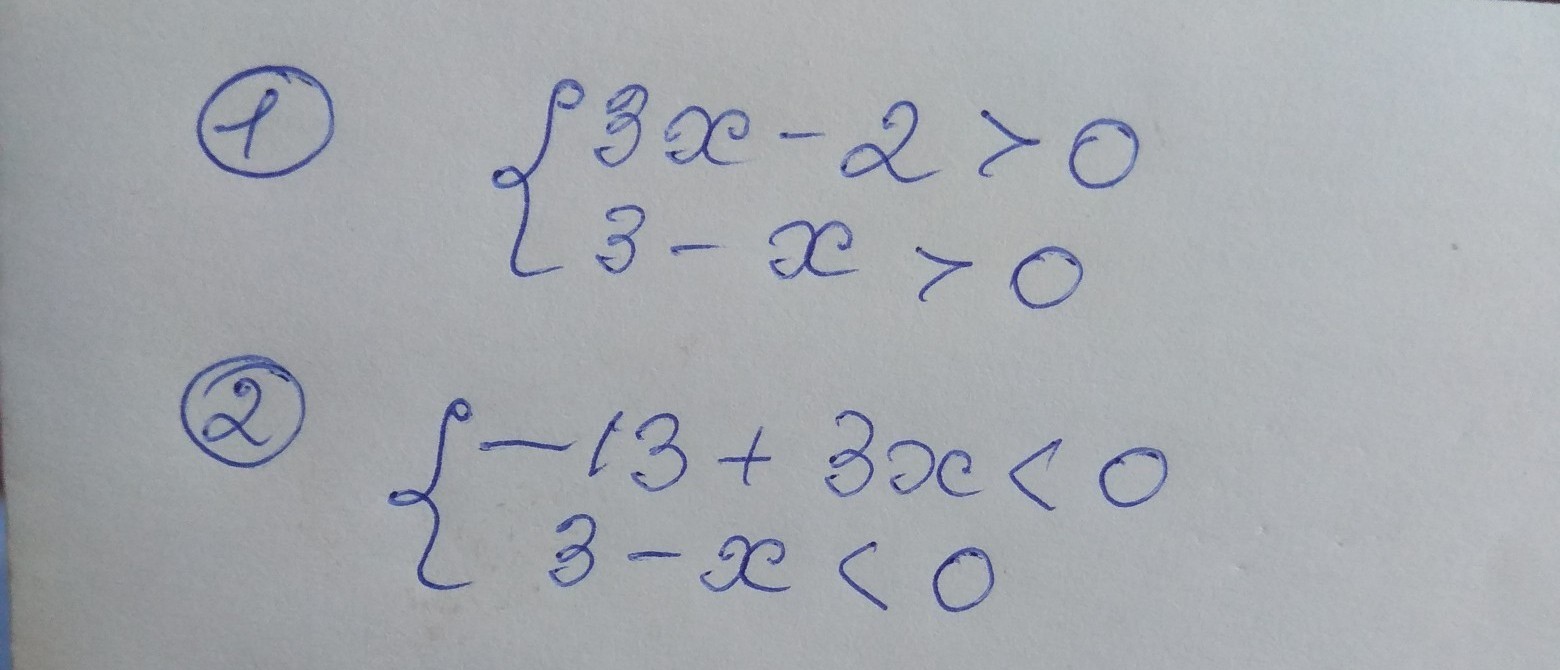 ① { 3x - 2 > 0
3 - x > 0
② { -13 + 3x < 0
3 - x < 0